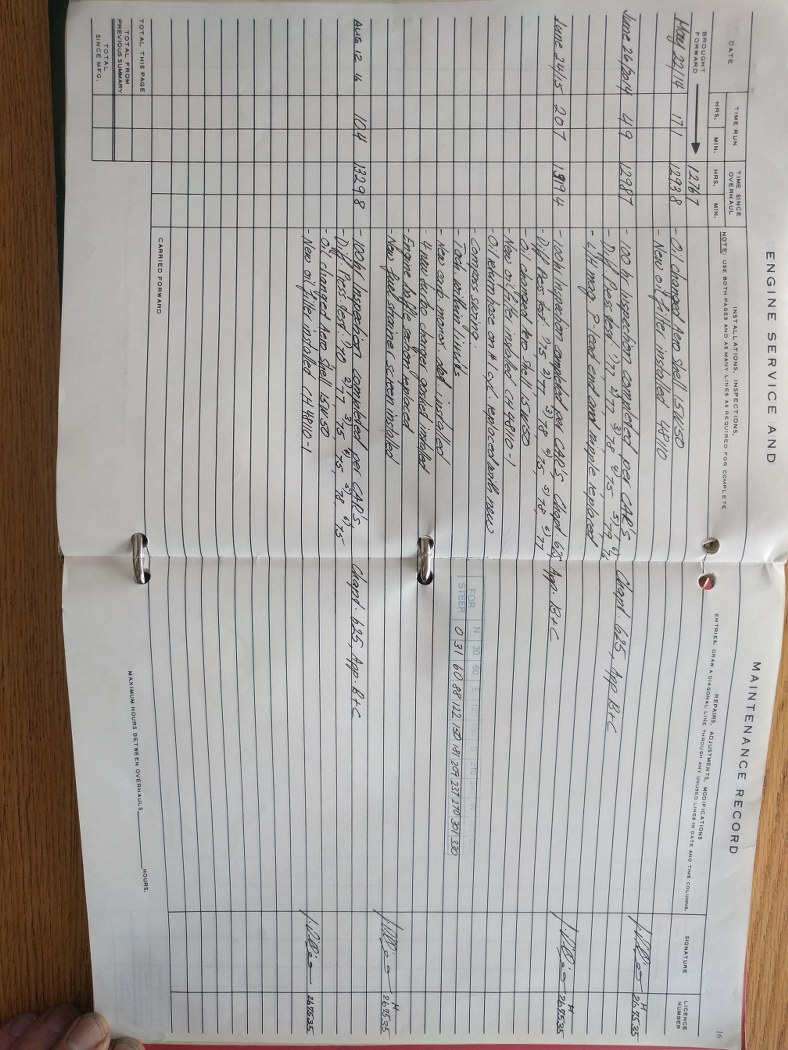 ENGINE SERVICE AND MAINTENANCE RECORD
16
DATE
TIME RUN
HRS. MIN.
TIME SINCE OVERHAUL
HRS. MIN.
INSTALLATIONS, INSPECTIONS, REPAIRS, ADJUSTMENTS, MODIFICATIONS
NOTE: USE BOTH PAGES AND AS MANY LINES AS REQUIRED FOR COMPLETE ENTRIES. DRAW A DIAGONAL LINE THROUGH ANY UNUSED LINES IN DATE AND TIME COLUMNS.
SIGNATURE
LICENCE NUMBER
BROUGHT FORWARD
1276 7
May 22/14 17 1 1293 8 - Oil changed Aero Shell 15W50
- New oil filter installed 48110
June 26/2014 4 9 1298 7 - 100 hr Inspection completed per CAR's Chapt. 625, App. B+C
- Diff Press test 1) 77 2) 77 3) 78 4) 75 5) 79
- L/H mag P lead end and replaced
M 267535
June 24/15 20 7 1319 4 - 100 hr Inspection completed per CAR's Chapt 625 App. B+C
- Diff Press test 1) 75 2) 77 3) 78 4) 75 5) 78 6) 77
- Oil changed Aero Shell 15W50
- New oil filter installed CH48110-1
- Oil return hose on # cyl. replaced with new
- Compass swing
FOR N 30 60 E
STEER 0 31 60 88 122 150 181 209 237 270 301 330
- Tach within limits
- New carb. monor. installed
- 4 new turbo charger gasket installed
- Engine baffle replaced
- New fuel strainer screen installed
M 267535
M 267535
Aug 12 16 10 4 1329 8 - 100 hr Inspection completed per CAR's, Chapt. 625, App. B+C
- Diff Press test 1) 70 2) 77 3) 75 4) 75 5) 78 6) 75
- Oil changed Aero Shell 15W50
- New oil filter installed CH48110-1
267535
TOTAL THIS PAGE
TOTAL FROM PREVIOUS SUMMARY
TOTAL SINCE MFG.
CARRIED FORWARD
MAXIMUM HOURS BETWEEN OVERHAULS HOURS.